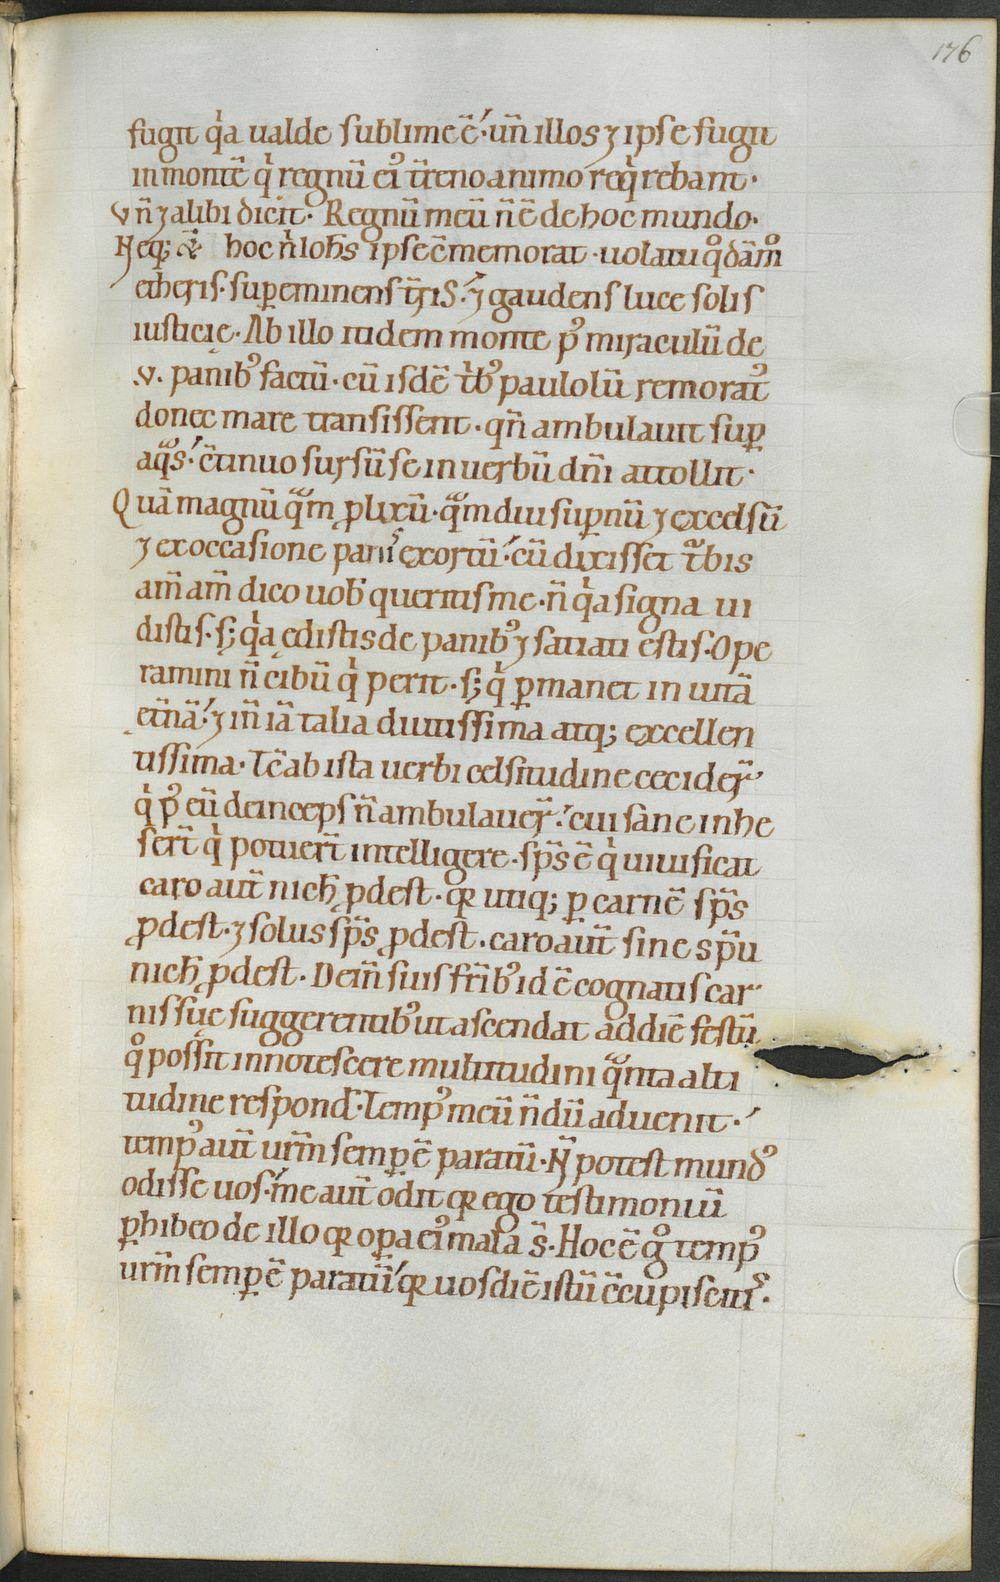 176
fugit q̇a ualde sublime ē. un̄ illos ⁊ ipse fugit
in montē q̇ regnū ei᷒ t̄reno animo req̇rebant.
Vn̄ ⁊ alibi dicit. Regnū meū n̄ ē de hoc mundo.
Neq; hoc ipse cōmemorat. uolatu
etheris. suꝑeminens t̄ris. ⁊ gaudens luce solis
iusticię. Ab illo itidem monte p᷒ miraculū de
.v. panib᷒ factū. cū isdē t̄b᷒ paulolū remorat᷒
donec mare transissent. qn̄ ambulauit suꝑ
aq̄s. c̄tinuo sursū se in uerbū dn̄i attollit.
Quā magnū q̄m ꝓlixū. q̄mdiu suꝑnū ⁊ excelsū
⁊ ex occasione panis exortū. cū dixisset t̄bis
am̄ am̄ dico uob̄ queritis me. n̄ q̇a signa ui
distis. s; q̇a edistis de panib᷒ ⁊ satiati estis. Ope
ramini n̄ cibū q̇ perit. s; q̇ ꝑmanet in uitā
et̄nā. ⁊ im̄ iā talia diuissima atq; excellen
tissima. Tc̄ ab ista uerbi celsitudine cecider̄
q̇ p᷒ eū deinceps n̄ ambulauer̄. cui sane inhe
sert̄ q̇ potuert̄ intelligere. sp̄s ē q̇ uiuificat
caro aut̄ nich̄ ꝓdest. qr utiq; ꝑ carnē sp̄s
ꝓdest. ⁊ solus sp̄s ꝓdest. caro aut̄ sine sp̄u
nich̄ ꝓdest. Dein̄ suis fr̄ib᷒ id ē cognatis car
nis suę suggerentib᷒ ut ascendat ad diē festū
q̊ possit innotescere multitudini q̄nta alti
tudine respond̄. Temp᷒ meū n̄dū aduenit.
temp᷒ aut̄ ur̄m semꝑ ē paratū. N̄ potest mund᷒
odisse uos. me aut̄ odit qr ego testimoniū
ꝑhibeo de illo qr oꝑa ei᷒ mala s̄. Hoc ē g̊ temp᷒
ur̄m semꝑ ē paratū. qr uos diē istū c̄cupiscitis.